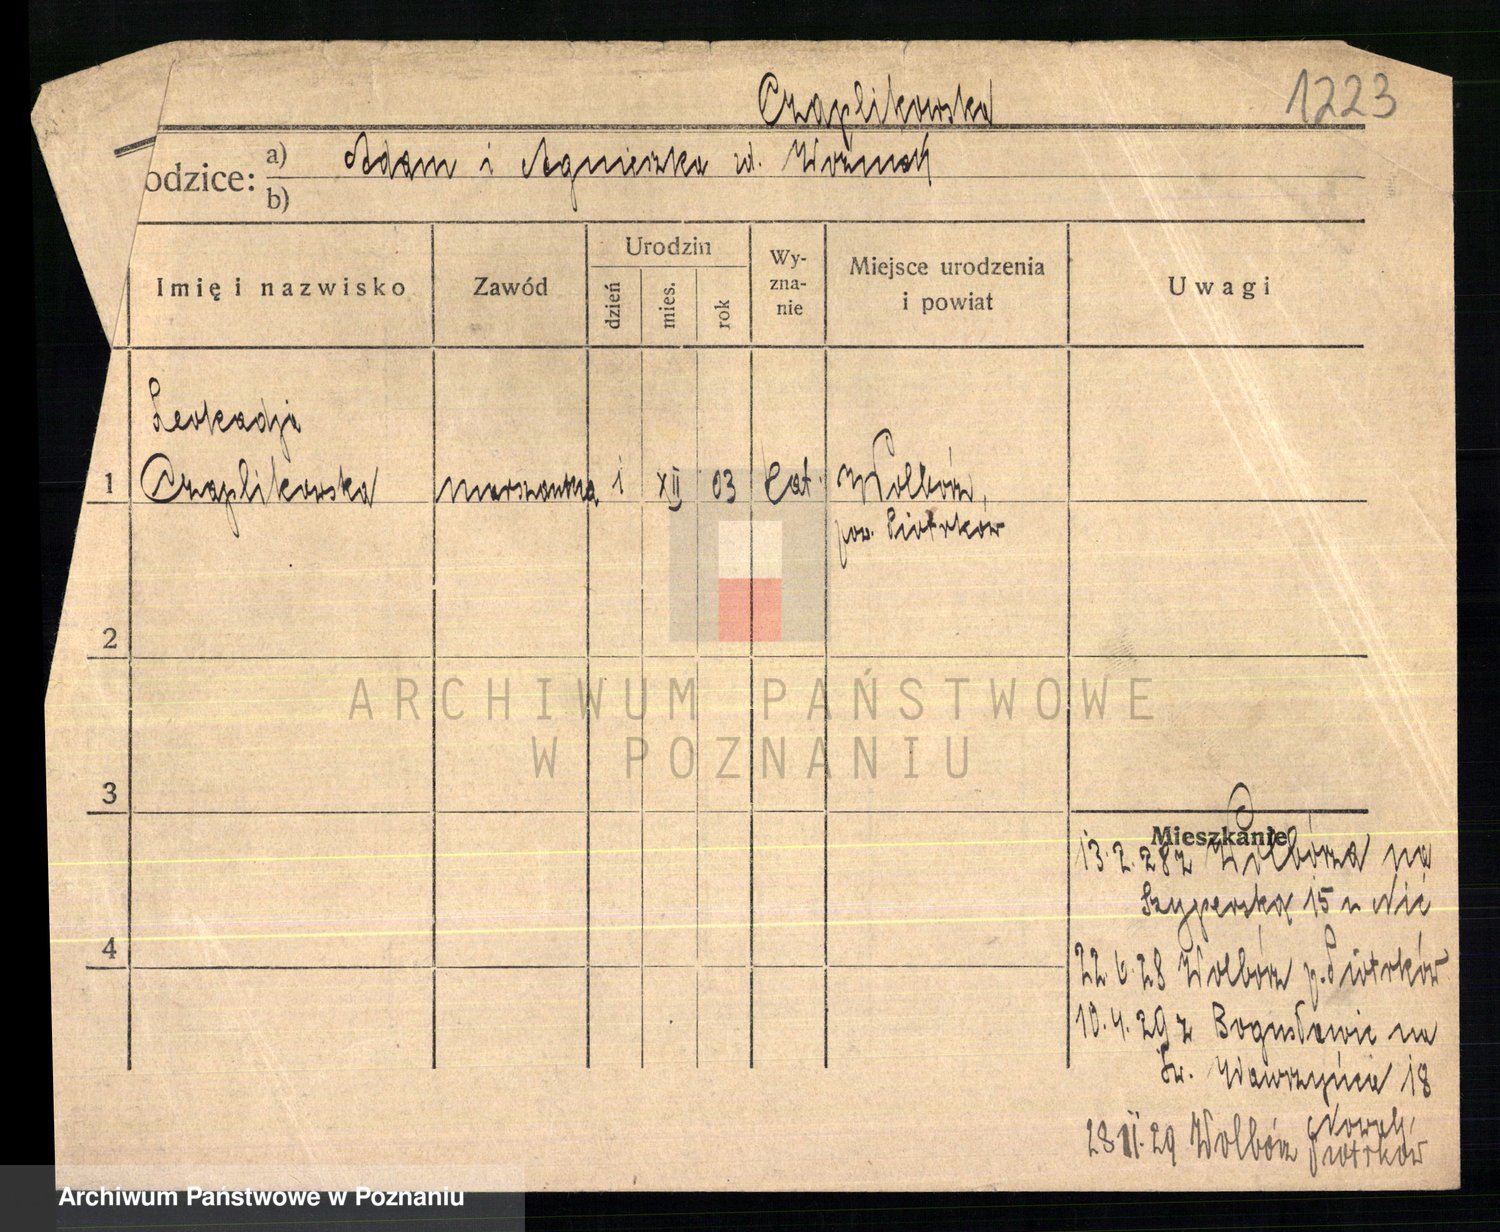 Czaplikowska
1223
odzice:
a) Adam i Agnieszka zd. Woźniak
b)
Imię i nazwisko
Zawód
Urodzin
dzień
mies.
rok
Wy-
zna-
nie
Miejsce urodzenia
i powiat
Uwagi
Leokadja
1 Czaplikowska
1 XII 03
Wolbórz,
pow. Piotrków
2
3
4
ARCHIWUM PAŃSTWOWE
W POZNANIU
Mieszkanie
13.2.28 z Wolbórza na
Szyperska 15
22 6 28 Wolbórz p. Piotrków
10.4.29 z Bogusławic na
Św. Wawrzyńca 18
28 II 29 Wolbórz Piotrków
Archiwum Państwowe w Poznaniu